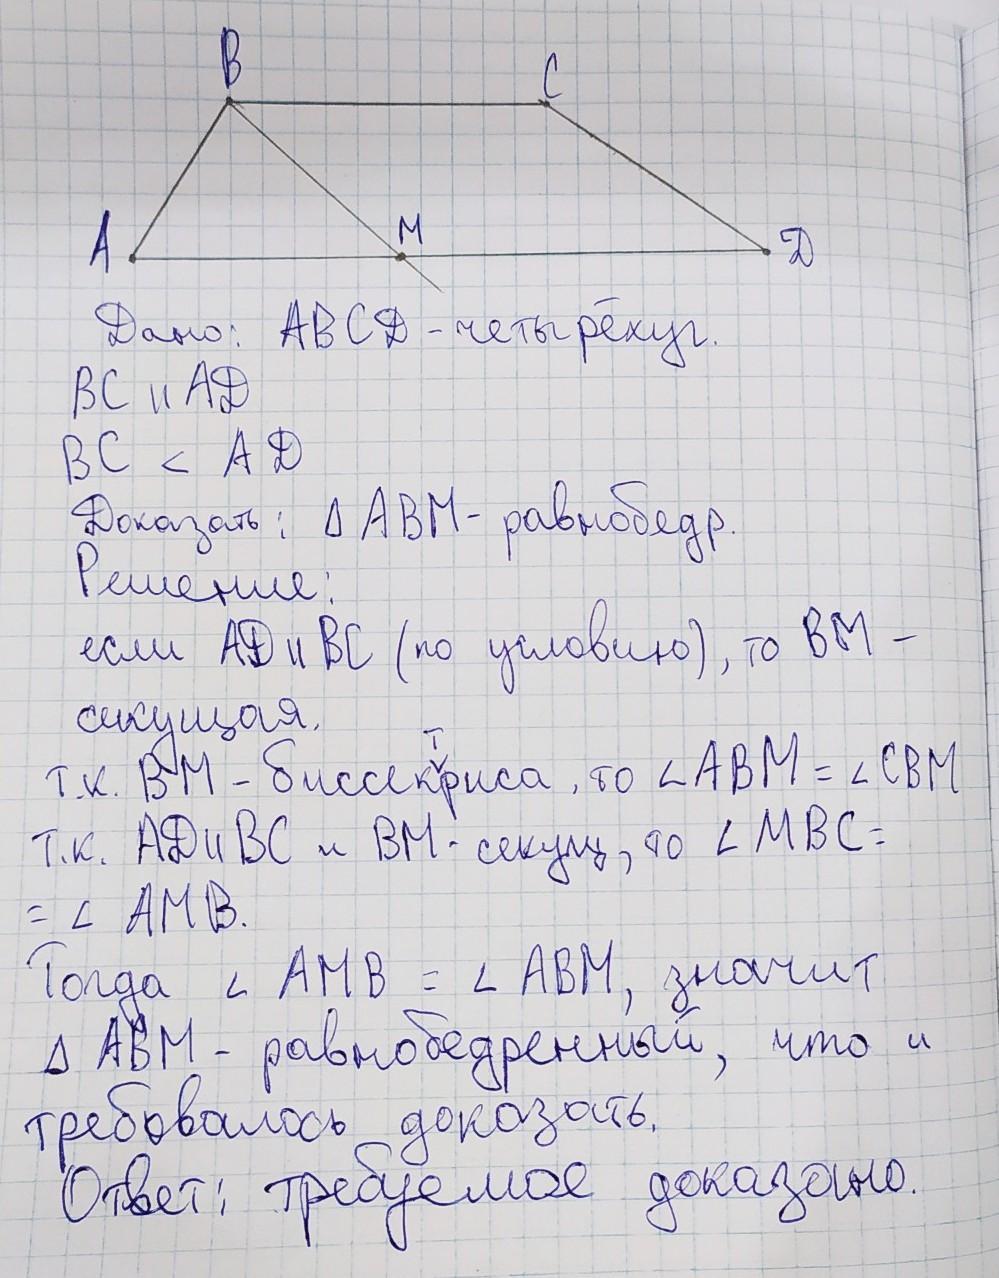 B
C
A
M
D
Дано: ABCD - четырёхуг.
BC || AD
BC < AD
Доказать: Δ ABM - равнобедр.
Решение:
если AD || BC (по условию), то BM -
секущая.
т.к. BM - биссектриса, то ∠ABM = ∠CBM
т.к. AD || BC и BM - секущ, то ∠MBC =
= ∠ AMB.
Тогда ∠ AMB = ∠ ABM, значит
Δ ABM - равнобедренный, что и
требовалось доказать.
Ответ: требуемое доказано.